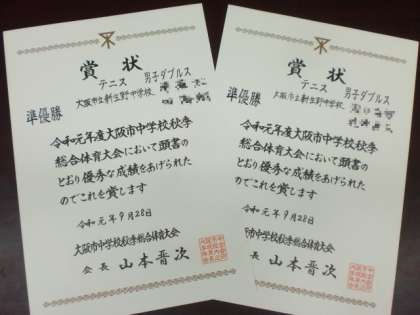 賞状
テニス 男子ダブルス
大阪市立新生野中学校
準優勝
令和元年度大阪市中学校秋季
総合体育大会において頭書の
とおり優秀な成績をあげられた
のでこれを賞します
令和元年9月28日
大阪市中学校秋季総合体育大会
会長 山本晋次
賞状
テニス 男子ダブルス
大阪市立新生野中学校
準優勝
令和元年度大阪市中学校秋季
総合体育大会において頭書の
とおり優秀な成績をあげられた
のでこれを賞します
令和元年9月28日
市中学校秋季総合体育大会
会長 山本晋次